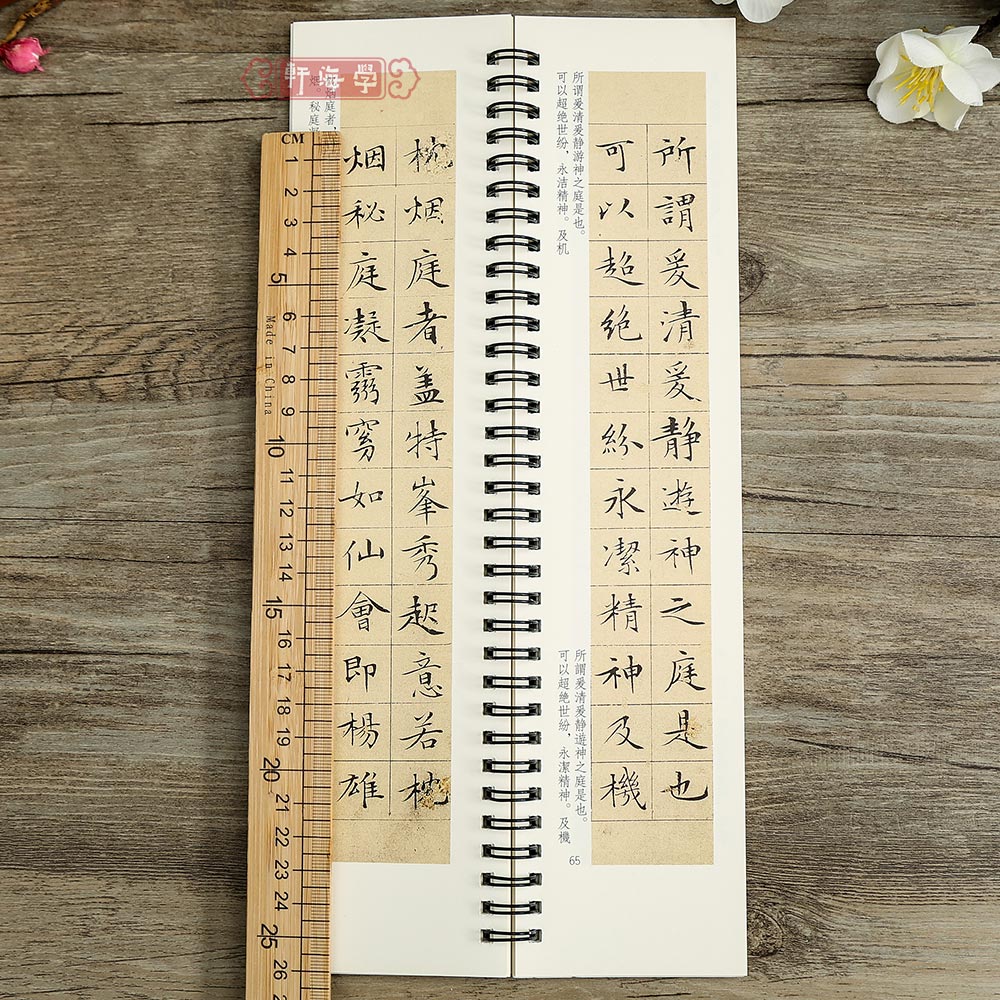 學海軒
所謂爰清爰靜遊神之庭是也
可以超絶世紛永潔精神及機
所谓爰清爰静游神之庭是也。
可以超绝世纷，永洁精神。及机
所謂爰清爰静遊神之庭是也。
可以超絶世紛，永潔精神。及機
65
枕烟庭者盖特峯秀起意若枕
烟秘庭凝窈如仙會即楊雄
烟庭者，
烟。秘庭
CM
1
2
3
4
5
6
7
8
9
10
11
12
13
14
15
16
17
18
19
20
21
22
23
24
25
26
Made in China